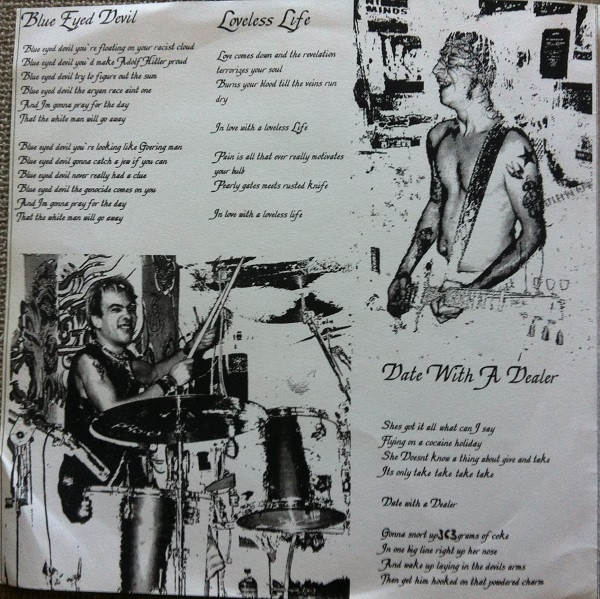 Blue Eyed Devil
Blue eyed devil you're floating on your racist cloud
Blue eyed devil you'd make Adolf Hitler proud
Blue eyed devil try to figure out the sum
Blue eyed devil the aryan race aint one
And Im gonna pray for the day
That the white man will go away
Blue eyed devil you're looking like Goering man
Blue eyed devil gonna catch a jew if you can
Blue eyed devil never really had a clue
Blue eyed devil the genocide comes on you
And Im gonna pray for the day
That the white man will go away
Loveless Life
Love comes down and the revelation
terrorizes your soul
Burns your blood till the veins run
dry
In love with a loveless Life
Pain is all that ever really motivates
your bulb
Pearly gates meets rusted knife
In love with a loveless life
MINDS
Date With A Dealer
Shes got it all what can I say
Flying on a cocaine holiday
She Doesnt know a thing about give and take
Its only take take take take
Date with a Dealer
Gonna snort up 3 grams of coke
In one big line right up her nose
And wake up laying in the devils arms
Then get him hooked on that powdered charm